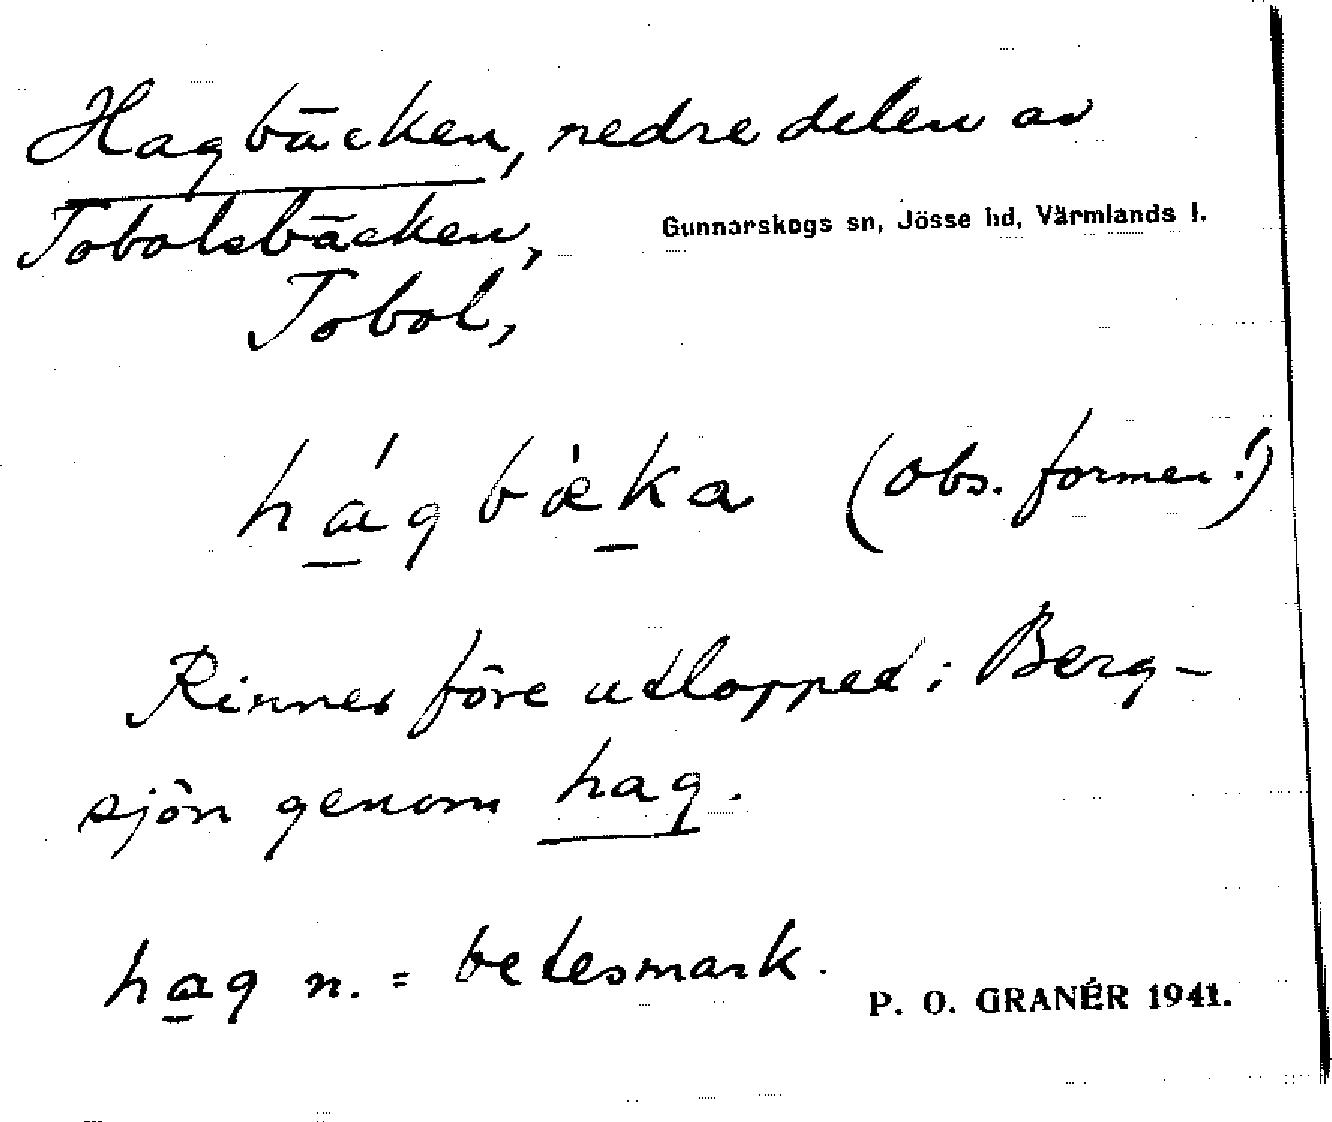 Hagbäcken, nedre delen av
Tobolsbäcken,
Gunnarskogs sn, Jösse hd, Värmlands l.
Tobol,
hágbæ̀ka (obs. formen!)
Rinner före utloppet i Berg-
sjön genom hag.
hag n. = betesmark.
P. O. GRANÉR 1941.